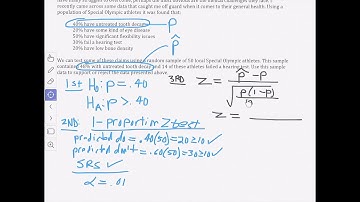 recently came across some data that caught me off guard when it comes to their general health. Using a
population of Special Olympic athletes it was found that:
40% have untreated tooth decay
20% have some kind of eye disease
20% have significant flexibility issues
30% fail a hearing test
20% have low bone density
p
p̂
We can test some of these claims using a random sample of 50 local Special Olympic athletes. This sample
contained 46% with untreated tooth decay and 14 of these athletes failed a hearing test. Use this sample
data to support or reject the data presented above.
1st H₀: p = .40
Hₐ: p > .40
2ND 1-proportion Z test
predicted do = .40(50) = 20 ≥ 10 ✓
predicted don't = .60(50) = 30 ≥ 10 ✓
SRS ✓
α = .01
3RD z = p̂ - p
√ p(1-p)
n
z =